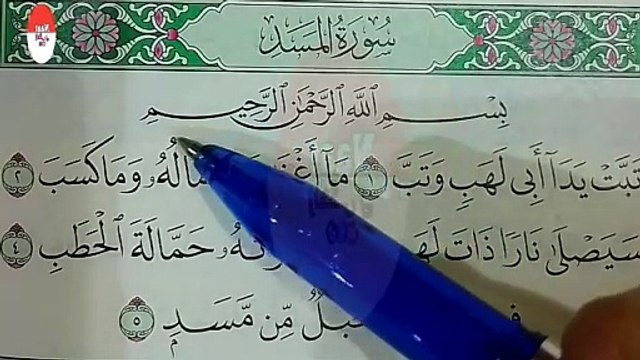 سُورَةُ المَسَدِ
بِسْمِ ٱللَّهِ ٱلرَّحْمَٰنِ ٱلرَّحِيمِ
تَبَّتْ يَدَآ أَبِى لَهَبٍ وَتَبَّ ١ مَآ مَالُهُۥ وَمَا كَسَبَ ٢
سَيَصْلَىٰ نَارًا ذَاتَ حَمَّالَةَ ٱلْحَطَبِ ٤
مِّن مَّسَدٍۭ ٥